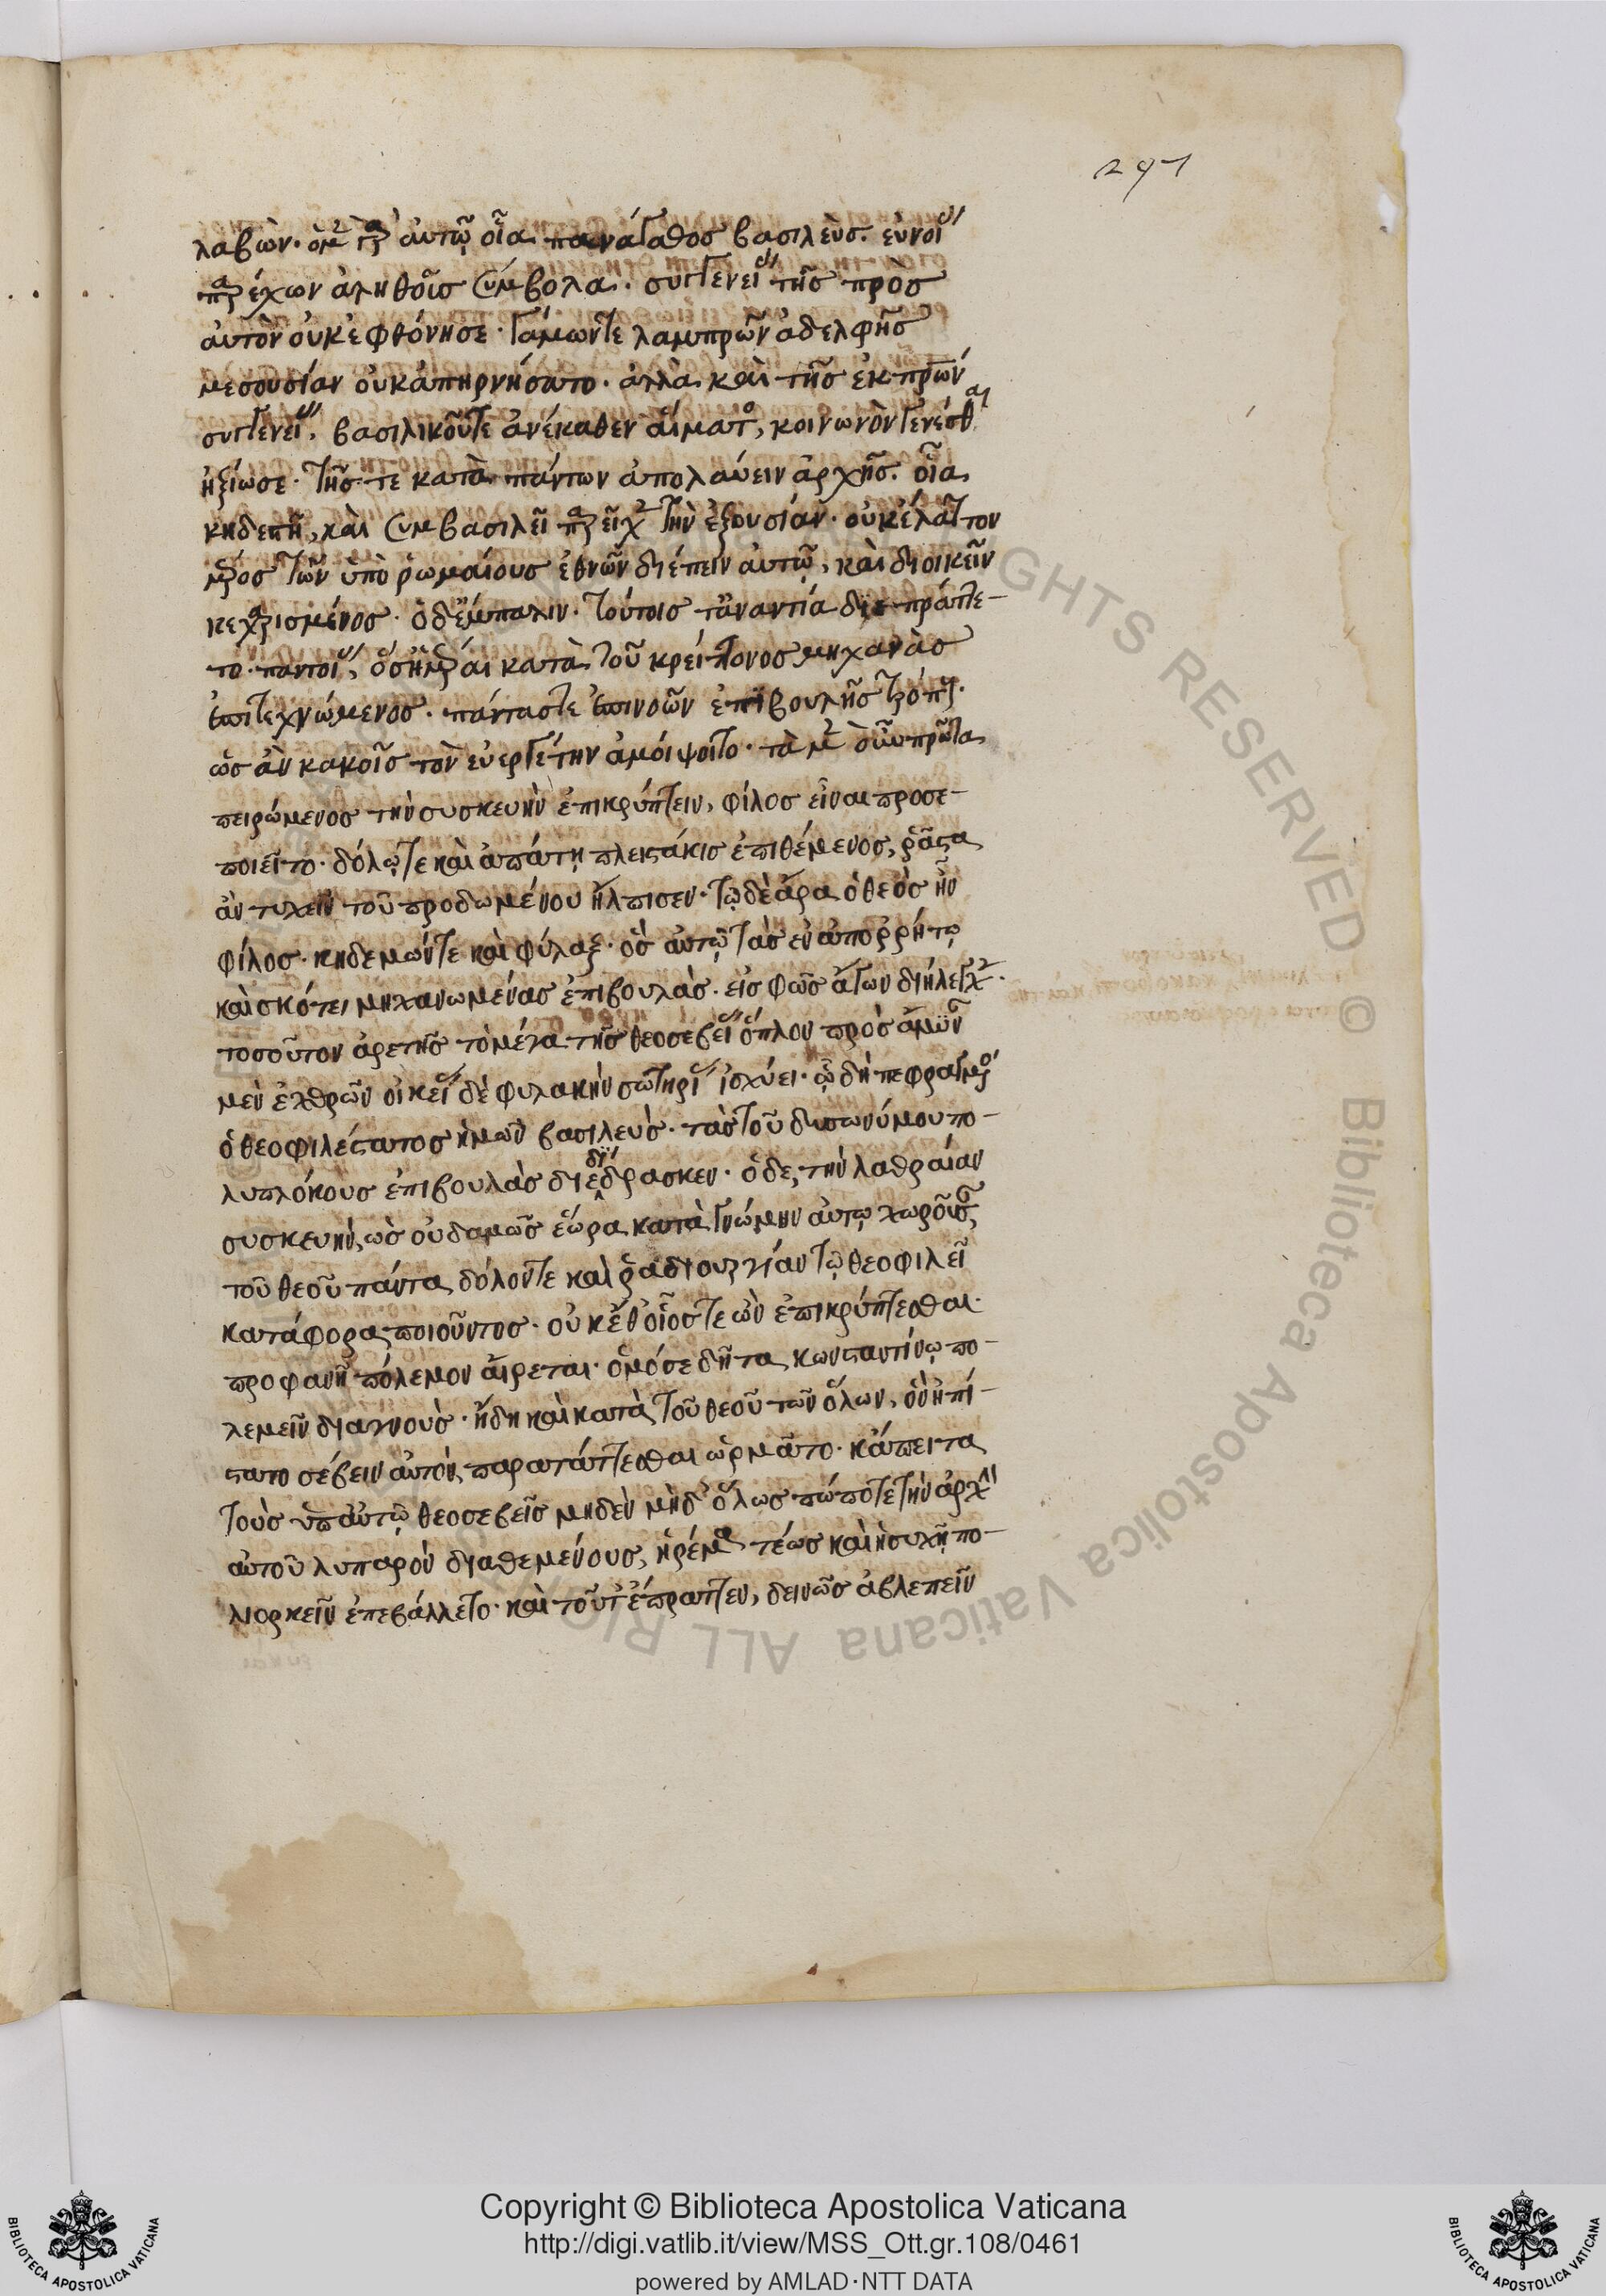 297
λαβών. ὁ μὲν γὰρ αὐτῷ οἷα πανάγαθος βασιλεὺς. εὐνοίας
παρέχων ἀληθοῖς σύμβολα. συγγενείας τῆς πρὸς
αὐτὸν οὐκ ἐφθόνησε. γάμων τε λαμπρῶν ἀδελφῆς
μετουσίαν οὐκ ἀπηρνήσατο. ἀλλὰ καὶ τῆς ἐκ πρων
συγγενείας, βασιλικοῦ τε ἀνέκαθεν αἵματος, κοινωνὸν γενέσθαι
ἠξίωσε. τῆς τε κατὰ πάντων ἀπολαύειν ἀρχῆς. οἷα
κηδεστῇ, καὶ συμβασιλεῖ παρεῖχε τὴν ἐξουσίαν. οὐκ ἔλαττον
μέρος τῶν ὑπὸ ῥωμαίους ἐθνῶν διέπειν αὐτῷ, καὶ διοικεῖν
κεχαρισμένος. ὁ δ' ἔμπαλιν. τούτοις τἀναντία διεπράττε-
το. παντοίας, ὁσημέραι κατὰ τοῦ κρείττονος μηχανὰς
ἐπιτεχνώμενος. πάντας τε ἐπινοῶν ἐπιβουλῆς τρόπους.
ὡς ἂν κακοῖς τὸν εὐεργέτην ἀμείψοιτο. τὰ μὲν οὖν πρῶτα
πειρώμενος τὴν συσκευὴν ἐπικρύπτειν, φίλος εἶναι προσε-
ποιεῖτο. δόλῳ τε καὶ ἀπάτῃ πλειστάκις ἐπιθέμενος, ῥᾷστα
ἂν τυχεῖν τοῦ προδωμένου ἤλπισεν. τῷ δὲ ἄρα ὁ θεὸς ἦν
φίλος. κηδεμών τε καὶ φύλαξ. ὃς αὐτῷ τὰς ἐν ἀπορρήτῳ
καὶ σκότει μηχανωμένας ἐπιβουλὰς. εἰς φῶς ἄγων διήλεγχε.
τοσοῦτον ἀρετῆς τὸ μέγα τῆς θεοσεβείας ὅπλον πρὸς ἄμυναν
μὲν ἐχθρῶν οἰκείας δὲ φυλακὴν σωτηρίας ἰσχύει. ᾧ δὴ πεφραγμένος
ὁ θεοφιλέστατος ἡμῶν βασιλεὺς. τὰς τοῦ δυσωνύμου πο-
λυπλόκους ἐπιβουλὰς διεδίδρασκεν. ὁ δὲ, τὴν λαθραίαν
συσκευὴν, ὡς οὐδαμῶς ἑώρα κατὰ γνώμην αὐτῷ χωροῦσαν,
τοῦ θεοῦ πάντα δόλον τε καὶ ῥᾳδιουργίαν τῷ θεοφιλεῖ
κατάφορα ποιοῦντος. οὐκ ἔθ' οἷός τε ὢν ἐπικρύπτεσθαι.
προφανῆ πόλεμον αἴρεται. ὁμόσε δῆτα κωνσταντίνῳ πο-
λεμεῖν διαγνοὺς. ἤδη καὶ κατὰ τοῦ θεοῦ τῶν ὅλων, ὃν ἠπί-
στατο σέβειν αὐτὸν, παρατάττεσθαι ὡρμᾶτο. κἄπειτα
τοὺς ὑπ' αὐτῷ θεοσεβεῖς μηδὲν μηδ' ὅλως πώποτε τὴν ἀρχὴν
αὐτοῦ λυπαρὸν διαθεμένους, ἠρέμα τέως καὶ ἡσυχῇ πο-
λιορκεῖν ἐπεβάλλετο. καὶ τοῦτ' ἔπραττεν, δεινῶς ἀβλεπεῖν
GHTS RESERVED © Biblioteca Apostolica Vaticana ALL RIG
Copyright © Biblioteca Apostolica Vaticana
http://digi.vatlib.it/view/MSS_Ott.gr.108/0461
powered by AMLAD·NTT DATA
BIBLIOTECA APOSTOLICA VATICANA
BIBLIOTECA APOSTOLICA VATICANA